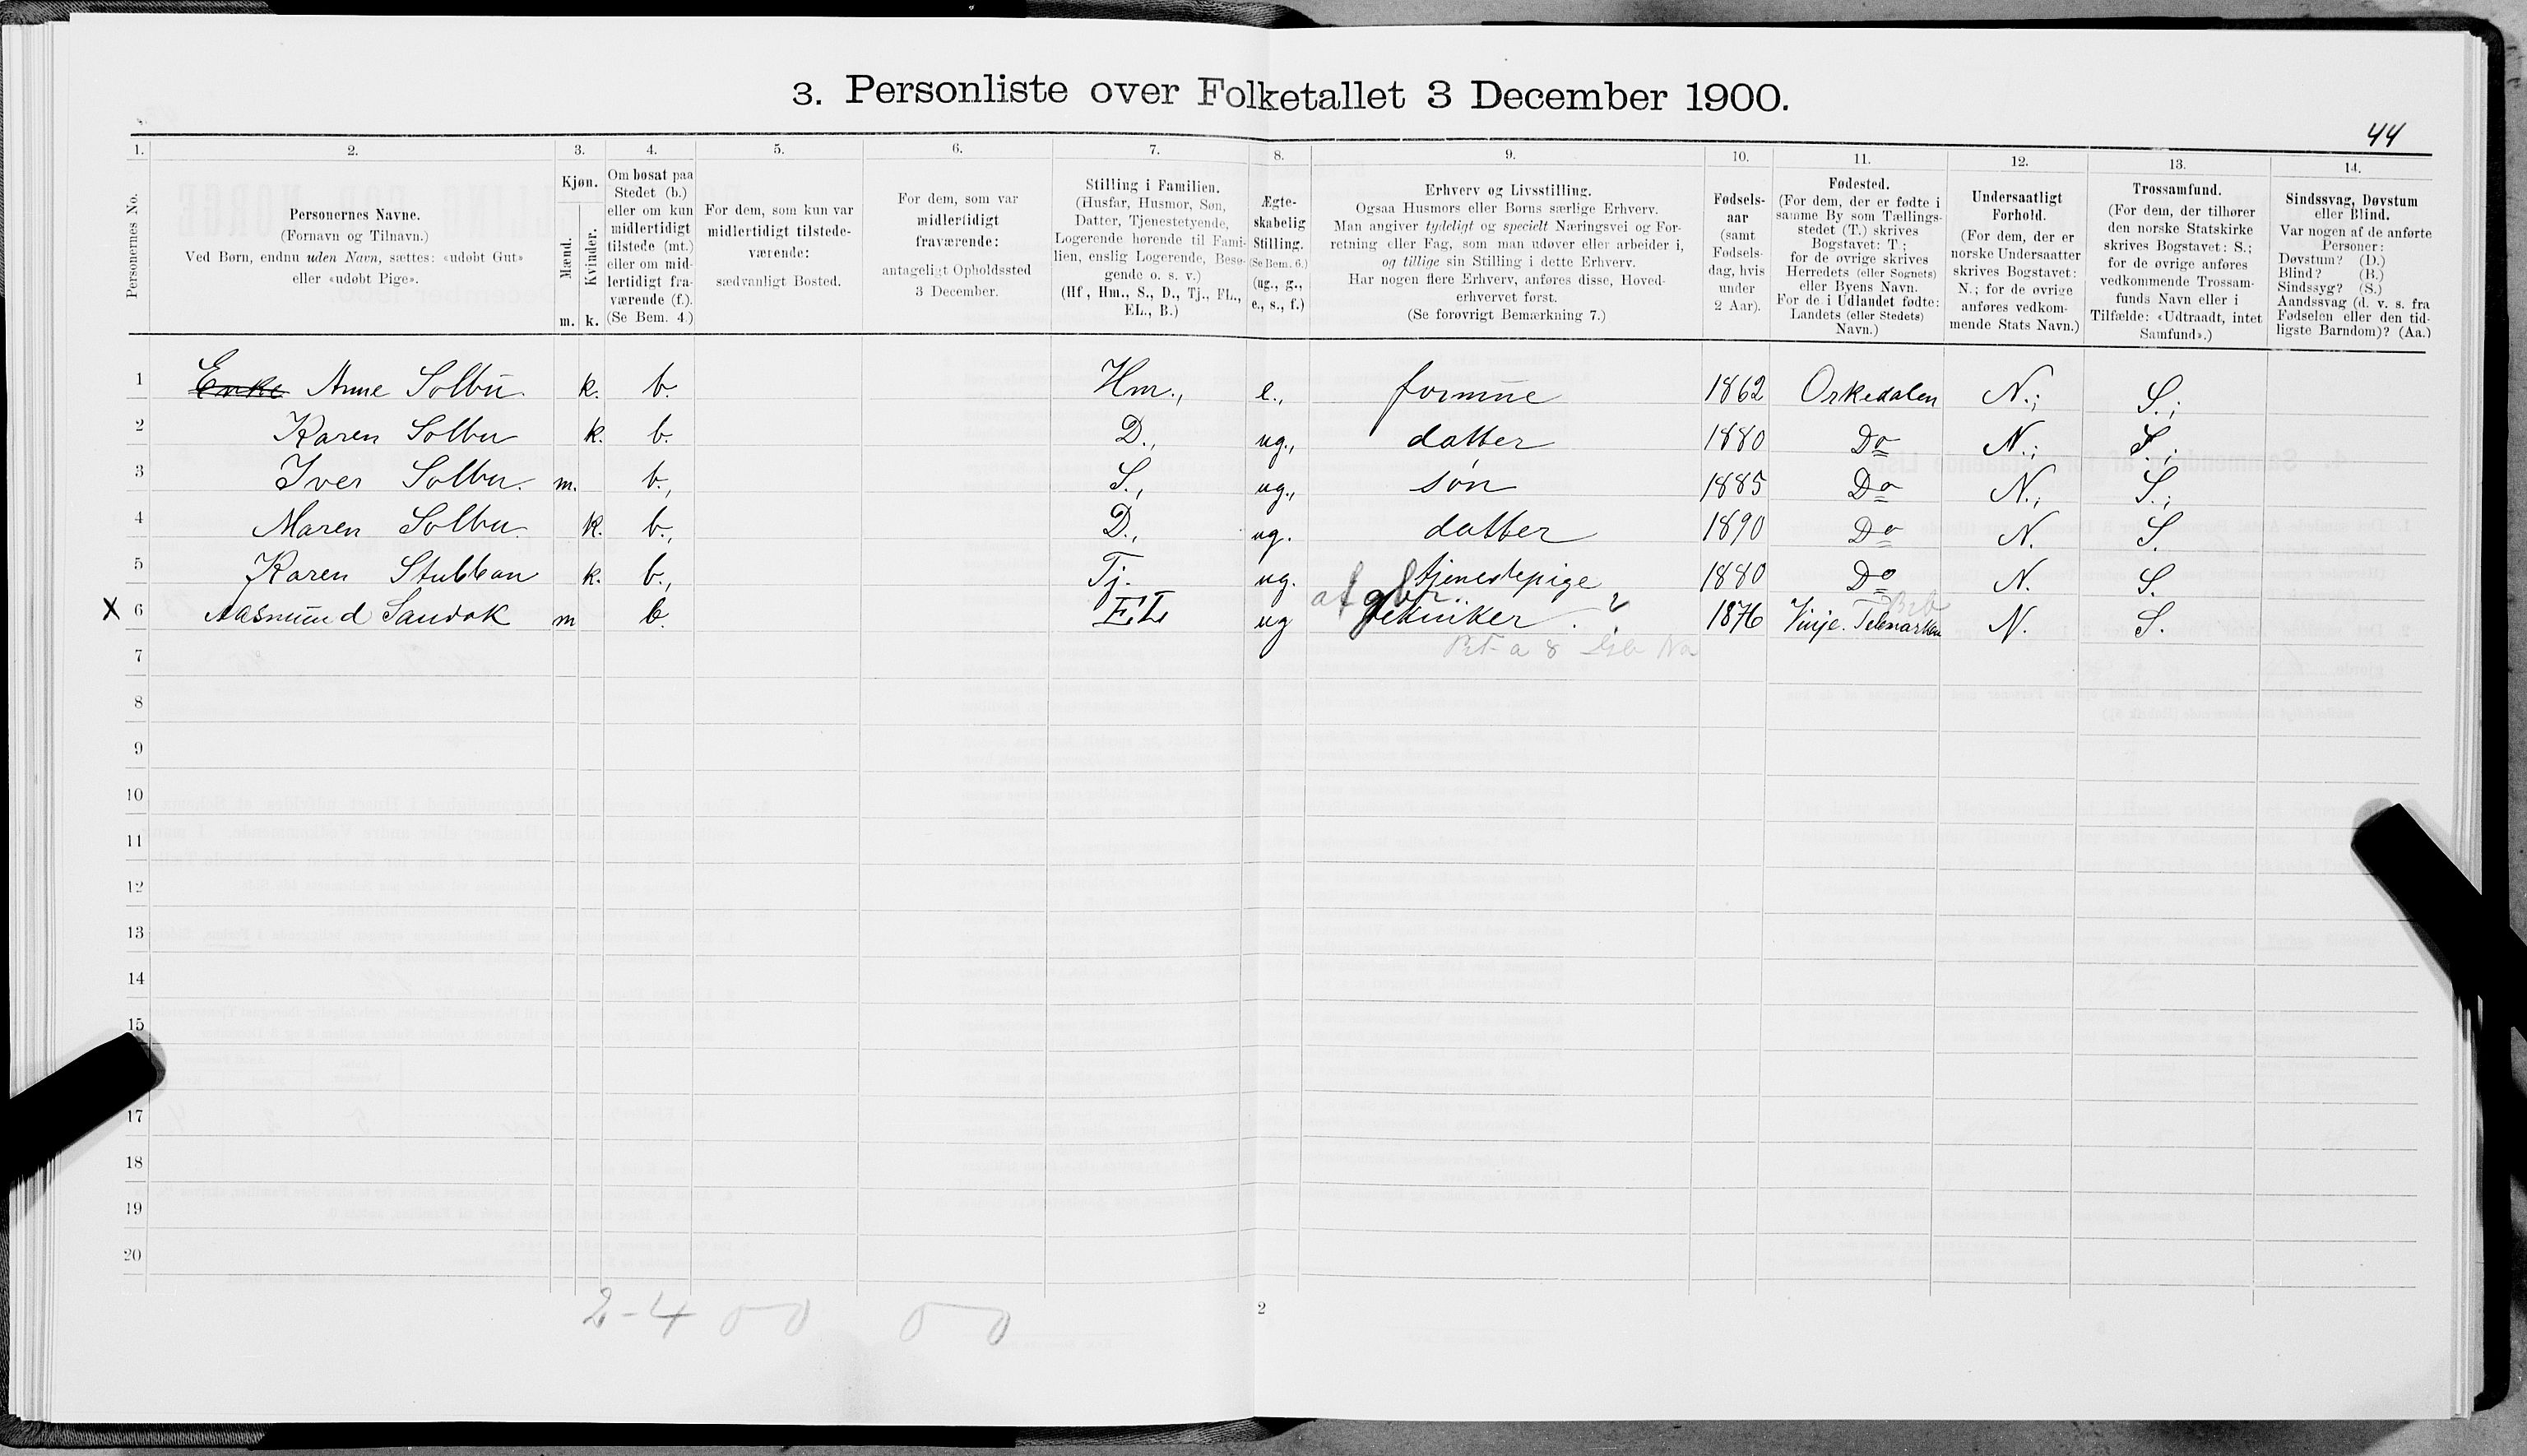 3. Personliste over Folketallet 3 December 1900.
44
1. 2. 3. 4. 5. 6. 7. 8. 9. 10. 11. 12. 13. 14.
Personernes No.
Personernes Navne.
(Fornavn og Tilnavn.)
Ved Børn, endnu uden Navn, sættes: «udøbt Gut»
eller «udøbt Pige».
Kjøn.
Mænd.
Kvinder.
m. k.
Om bosat paa
Stedet (b.)
eller om kun
midlertidigt
tilstede (mt.)
eller om mid-
lertidigt fra-
værende (f.).
(Se Bem. 4.)
For dem, som kun var
midlertidigt tilstede-
værende:
sædvanligt Bosted.
For dem, som var
midlertidigt
fraværende:
antageligt Opholdssted
3 December.
Stilling i Familien.
(Husfar, Husmor, Søn,
Datter, Tjenestetyende,
Logerende hørende til Fami-
lien, enslig Logerende, Besø-
gende o. s. v.)
(Hf, Hm., S., D., Tj., FL.,
EL., B.)
Ægte-
skabelig
Stilling.
(Se Bem. 6.)
(ug., g.,
e., s., f.)
Erhverv og Livsstilling.
Ogsaa Husmors eller Børns særlige Erhverv.
Man angiver tydeligt og specielt Næringsvei og For-
retning eller Fag, som man udøver eller arbeider i,
og tillige sin Stilling i dette Erhverv.
Har nogen flere Erhverv, anføres disse, Hoved-
erhvervet først.
(Se forøvrigt Bemærkning 7.)
Fødsels-
aar
(samt
Fødsels-
dag, hvis
under
2 Aar).
Fødested.
(For dem, der er fødte i
samme By som Tællings-
stedet (T.) skrives
Bogstavet: T.;
for de øvrige skrives
Herredets (eller Sognets)
eller Byens Navn.
For de i Udlandet fødte:
Landets (eller Stedets)
Navn.)
Undersaatligt
Forhold.
(For dem, der er
norske Undersaatter
skrives Bogstavet:
N.; for de øvrige
anføres vedkom-
mende Stats Navn.)
Trossamfund.
(For dem, der tilhører
den norske Statskirke
skrives Bogstavet: S.;
for de øvrige anføres
vedkommende Trossam-
funds Navn eller i
Tilfælde: «Udtraadt, intet
Samfund».)
Sindssvag, Døvstum
eller Blind.
Var nogen af de anførte
Personer:
Døvstum? (D.)
Blind? (B.)
Sindssyg? (S.)
Aandssvag (d. v. s. fra
Fødselen eller den tid-
ligste Barndom)? (Aa.)
1 Enke Anne Solbu k. b. Hm., e., formue 1862 Orkedalen N.; S.;
2 Karen Solbu k. b. D., ug., datter 1880 Do N.; S.;
3 Iver Solbu. m. b., S., ug., søn 1885 Do N., S.;
4 Maren Solbu. k. b., D., ug. datter 1890 Do N. S.
5 Karen Stubban k. b., Tj. ug. tjenestepige 1880 Do N. S.
X 6 Aasmund Sandok m b. EL ug tekniker . ? 1876 Vinje. Telemarken N. S.
7
8
9
10
11
12
13
14
15
17
18
19
20
2-4 0-0 0-0
2